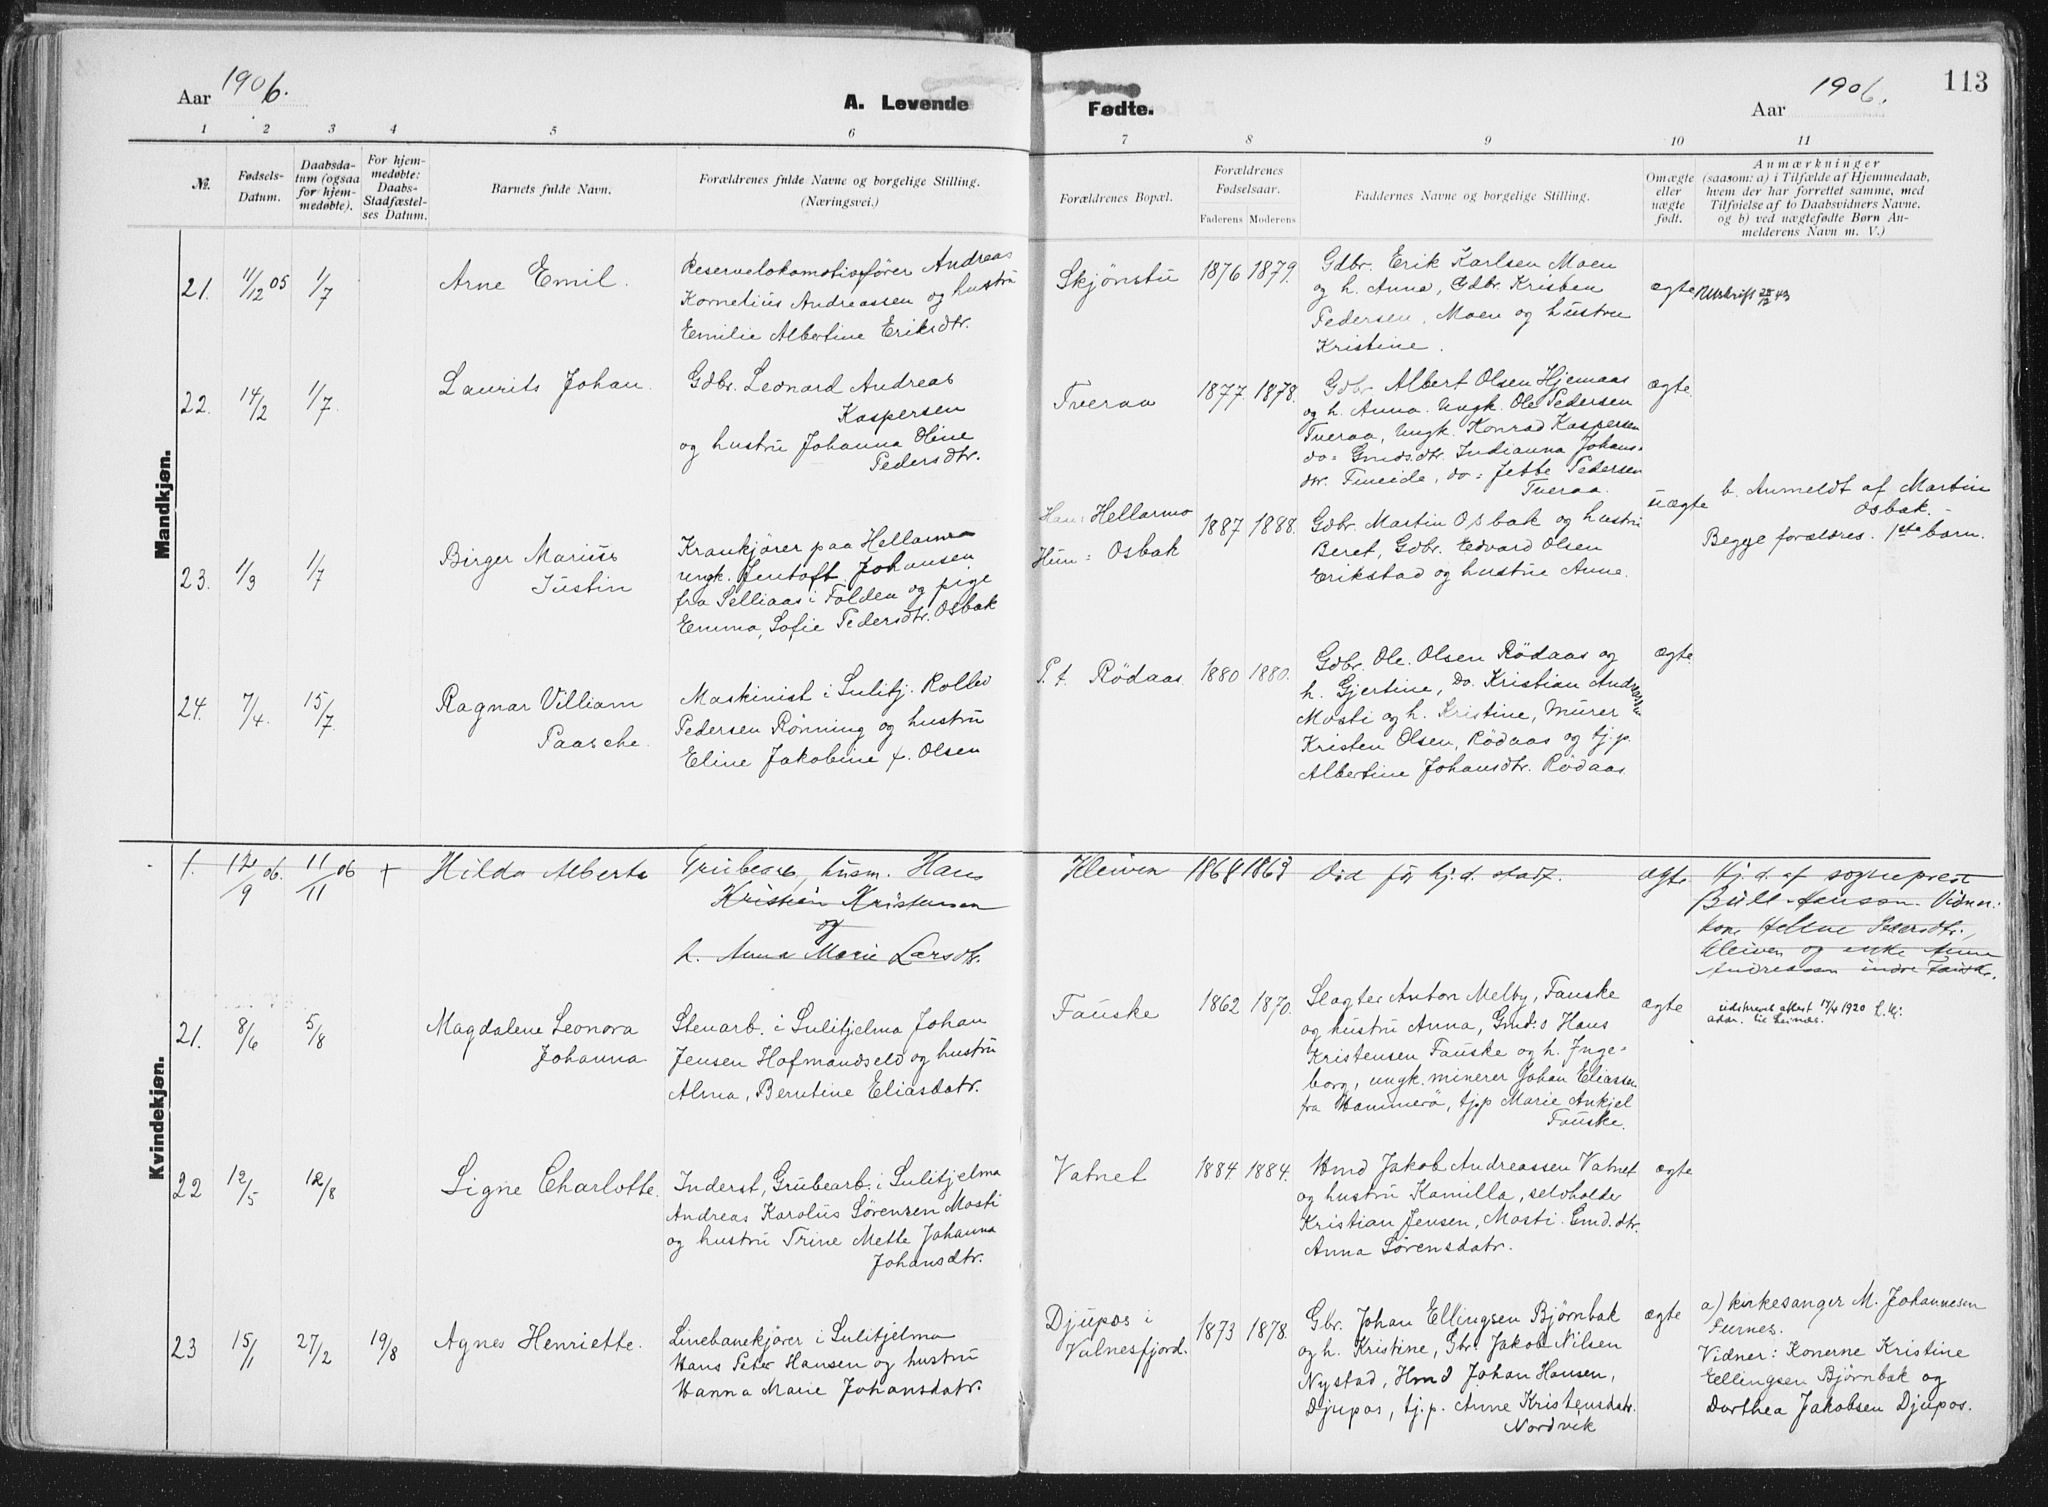 Aar 1906.
A. Levende
Fødte.
Aar 1906.
113
1 2 3 4 5 6 7 8 9 10 11
№.
Fødsels-
Datum.
Daabsda-
tum (ogsaa
for hjem-
medøbte).
For hjem-
medøbte:
Daabs-
Stadfæstel-
ses Datum.
Barnets fulde Navn.
Forældrenes fulde Navne og borgelige Stilling.
(Næringsvei.)
Forældrenes Bopæl.
Forældrenes
Fødselsaar.
Faderens Moderens
Faddernes Navne og borgelige Stilling.
Omægte
eller
uægte
født.
Anmærkninger
(saasom: a) i Tilfælde af Hjemmedaab,
hvem der har forrettet samme, med
Tilføielse af to Daabsvidners Navne.
og b) ved uægtefødte Børn An-
melderens Navn m. V.)
Mandkjøn.
21. 11/12 05 1/7
Arne Emil.
Reservelokomotivfører Andreas
Kornelius Andreassen og hustru
Emilie Albertine Eriksdtr.
Skjønstu
1876 1879.
Gdbr. Erik Karlsen Moen
og h. Anna, Gdbr. Kristen
Pedersen, Moen og hustru
Kristine.
ægte
Utskrift 28/12 43
22. 14/2 1/7.
Laurits Johan.
Gdbr. Leonard Andreas
Kaspersen
og hustru Johanna Oline
Pedersdtr.
Tveraa
1877. 1878.
Gdbr Albert Olsen Hjemaas
og h. Anna. Ungk. Ole Pedersen
Tveraa, Ungk. Konrad Kaspersen
do = Gmds.dtr. Indianna Johans-
dtr. Fineide, do = Jette Pedersen
Tveraa.
ægte
23. 1/3 1/7
Birger Marius
Justin
Krankjører paa Hellarmo
ungk. Jentoft Johansen
fra Selliaas i Folden og pige
Emma, Sofie Pedersdtr. Osbak
Han: Hellarmo
Hun = Osbak
1887 1888.
Gdbr. Martin Osbak og hustru
Beret, Gdbr. Edvard Olsen
Erikstad og hustru Anne.
uægte
b. Anmeldt af Martin
Osbak.
Begge forældres. 1ste barn.
24. 7/4. 15/7
Ragnar Villiam
Paasche.
Maskinist i Sulitj. Rollev
Pedersen Rønning og hustru
Eline Jakobine f. Olsen
P.t. Rödaas.
1880 1880.
Gdbr. Ole. Olsen Rödaas og
h. Gjertine, Do. Kristian Andreassen
Mosti og h. Kristine, Murer
Kristen Olsen, Rödaas og tj.p.
Albertine Johansdtr. Rödaas.
ægte
Kvindekjøn.
1. 12/9 06. 11/11 06 +
Hilda Alberta
Grubearb, husm. Hans
Kristian Kristensen
og
h. Anna Marie Larsdtr.
Kleiven
1868 1863
Död för hj.d. stadf.
ægte.
Hj. d. af sogneprest
Bull Hanson. Vidner:
kone Helene Pedersdtr.,
Kleiven og enke Anne
Andreassen indre Fauske.
21. 8/6 5/8
Magdalene Leonora
Johanna
Stenarb. i Sulitjelma Johan
Jensen Hofmandseld og hustru
Alma, Berntine Eliasdatr.
Fauske
1862 1870.
Slagter Anton Melby, Fauske
og hustru Anna, Gmd: Hans
Kristensen Fauske og h. Inge-
borg, ungk. minerer Johan Eliassen
fra Hammerö, tj.p Marie Ankjel
Fauske.
ægte
udskrevet attest 17/4 1920
22 12/5 12/8
Signe Charlotte.
Inderst, Grubearb. i Sulitjelma
Andreas Karolius Sörensen Mosti
og hustru Trine Mette Johanna
Johansdtr.
Vatnet
1884. 1884.
Hmd Jakob Andreassen Vatnet
og hustru Kamilla, selvholder
Kristian Jensen, Mosti. Gmd.dtr.
Anna Sörensdatr.
ægte
23 15/1 27/2 19/8
Agnes Henriette.
Linebanekjører i Sulitjelma
Hans Peter Hansen og hustru
Hanna Marie Johansdatr.
Djupos i
Valnesfjord.
1873 1878.
Gbr. Johan Ellingsen Bjørnbak
og h. Kristine, Gbr. Jakob Nilsen
Nystad, Hmd Johan Hansen,
Djupos, tj.p. Anne Kristensdatr.
Nordvik
ægte
a) kirkesanger M. Johannesen
Furnes.
Vidner: Konerne Kristine
Ellingsen Bjørnbak og
Dorthea Jakobsen Djupos.